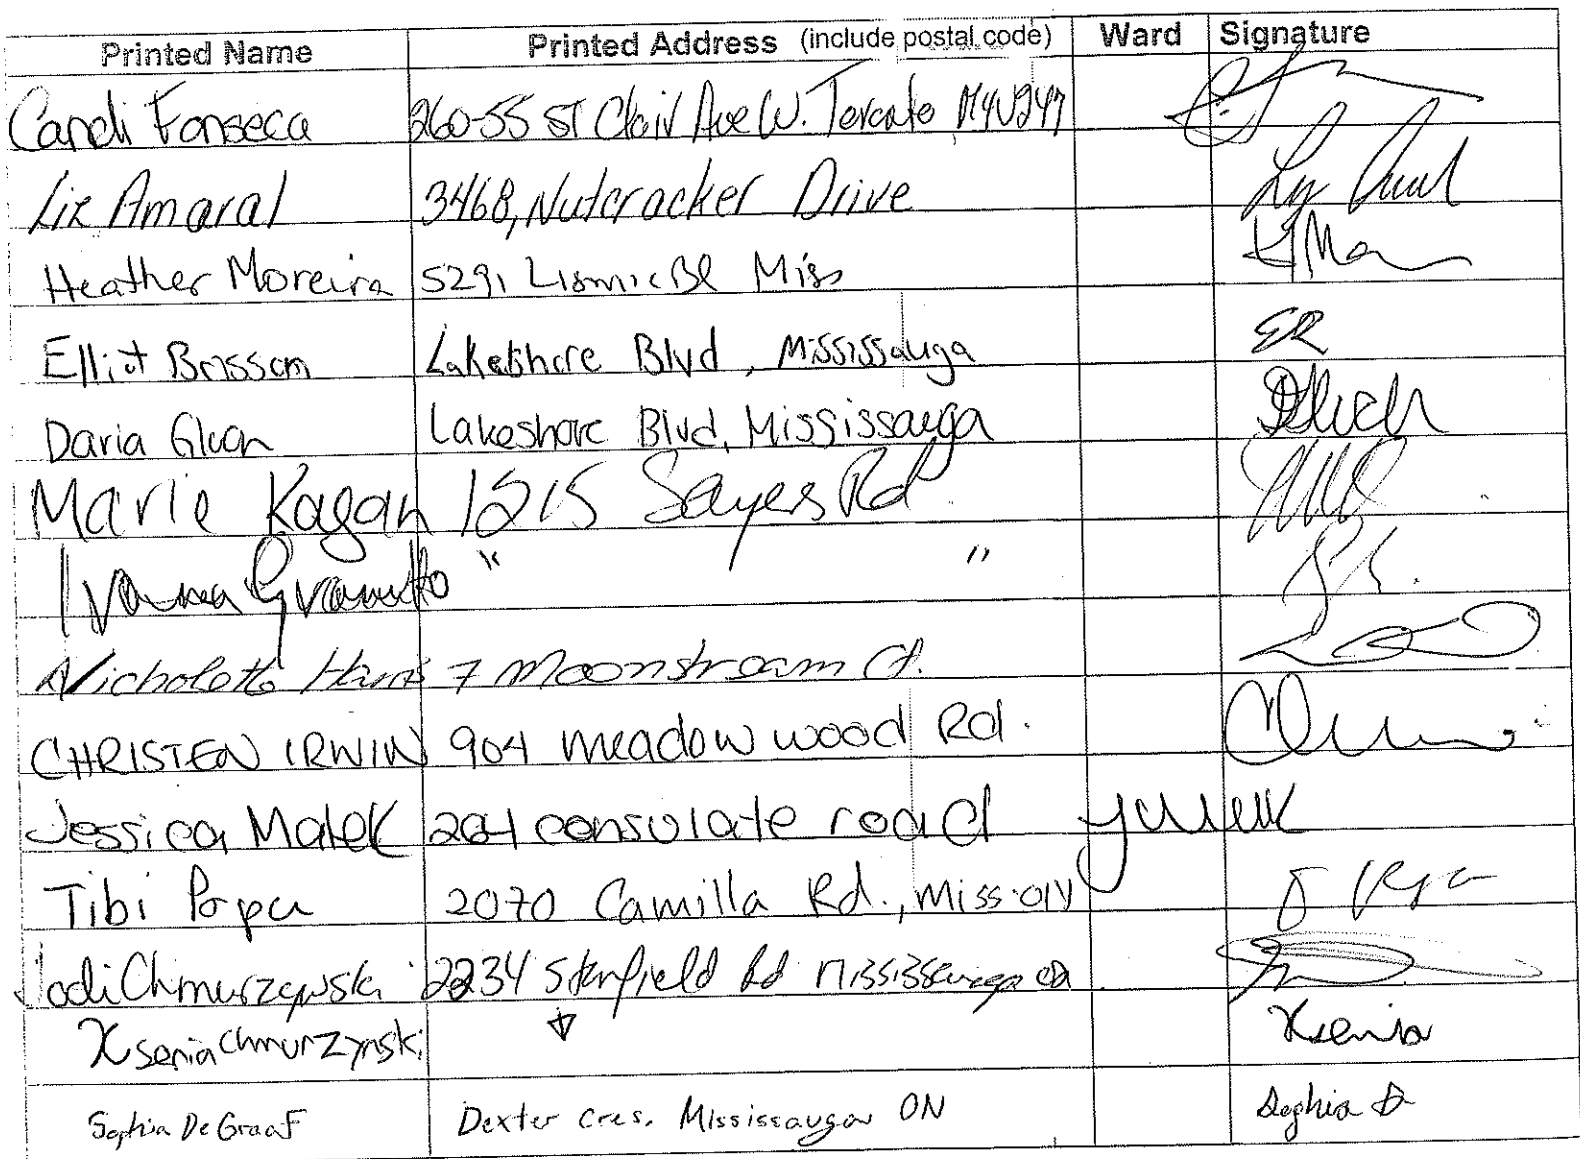 Printed Name Printed Address (include postal code) Ward Signature
Candi Fonseca 260-55 St Clair Ave W. Toronto M4V2Y7
Liz Amaral 3468, Nutcracker Drive
Heather Moreira 5291 Miss
Elliot Brisson Lakeshore Blvd, Mississauga ER
Daria Gluch Lakeshore Blvd, Mississauga
Marie Kagan 1215 Sayers Rd
Ivanna " "
Nicholette Harris 7 Moonstream Ct.
CHRISTEN IRWIN 904 meadow wood Rd.
Jessica Malek 264 consulate road
Tibi Popa 2070 Camilla Rd., Miss ON
Jodi Chmurzynski 2234 Stanfield Rd Mississauga
Ksenia Chmurzynski Ksenia
Sophia De Graaf Dexter cres. Mississauga ON Sophia D